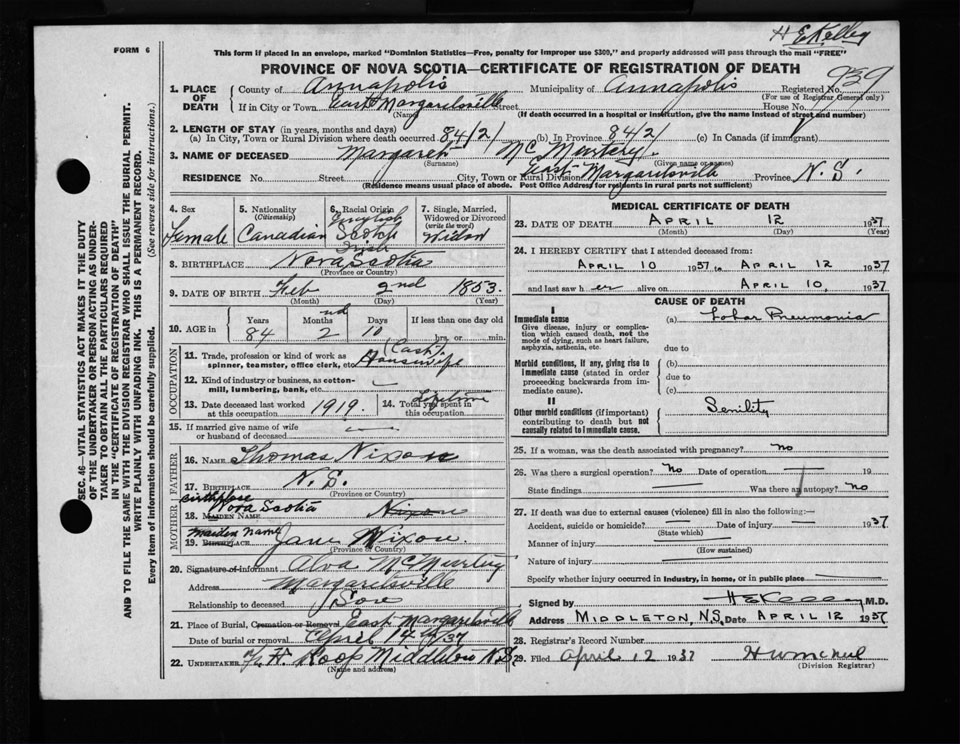 H E Kelley
FORM 6
This form if placed in an envelope, marked "Dominion Statistics—Free, penalty for improper use $300," and properly addressed will pass through the mail "FREE"
PROVINCE OF NOVA SCOTIA—CERTIFICATE OF REGISTRATION OF DEATH
939
1. PLACE OF DEATH
County of Annapolis Municipality of Annapolis Registered No.
(For use of Registrar General only)
If in City or Town East Margaretsville Street House No.
(Name) (If death occurred in a hospital or institution, give the name instead of street and number)
2. LENGTH OF STAY (in years, months and days)
(a) In City, Town or Rural Division where death occurred 84/2/ (b) In Province 84/2/ (c) In Canada (if immigrant)
3. NAME OF DECEASED Margaret
(Surname) (Given name or names)
RESIDENCE No. Street City, Town or Rural Division East Margaretsville Province N.S.
(Residence means usual place of abode. Post Office Address for residents in rural parts not sufficient)
4. Sex Female
5. Nationality (Citizenship) Canadian
6. Racial Origin English Scotch Irish
7. Single, Married, Widowed or Divorced (write the word) Widow
8. BIRTHPLACE Nova Scotia
(Province or Country)
9. DATE OF BIRTH Feb 2nd 1853
(Month) (Day) (Year)
10. AGE in Years Months Days If less than one day old
84 2 10 hrs. or min.
OCCUPATION
11. Trade, profession or kind of work as spinner, teamster, office clerk, etc. Housewife
12. Kind of industry or business, as cotton-mill, lumbering, bank, etc. —
13. Date deceased last worked at this occupation 1919.
14. Total yrs. spent in this occupation Lifetime
15. If married give name of wife or husband of deceased —
FATHER
16. NAME Thomas Nixon
17. BIRTHPLACE N.S.
(Province or Country)
MOTHER
birthplace Nova Scotia
18. MAIDEN NAME Nixon
maiden name
19. BIRTHPLACE Jane Nixon
(Province or Country)
20. Signature of informant Alva McMurtery
Address Margaretsville
Relationship to deceased Son
21. Place of Burial, Cremation or Removal East Margaretsville
Date of burial or removal April 14th/37
22. UNDERTAKER Roop Middleton N.S.
(Name and address)
MEDICAL CERTIFICATE OF DEATH
23. DATE OF DEATH APRIL 12 1937
(Month) (Day) (Year)
24. I HEREBY CERTIFY that I attended deceased from:
APRIL 10 1937 to APRIL 12 1937
and last saw her alive on APRIL 10, 1937
CAUSE OF DEATH
I
Immediate cause (a) Lobar Pneumonia
Give disease, injury or complication which caused death, not the mode of dying, such as heart failure, asphyxia, asthenia, etc.
due to
Morbid conditions, if any, giving rise to immediate cause (stated in order proceeding backwards from immediate cause).
(b)
due to
(c)
II
Other morbid conditions (if important) contributing to death but not causally related to immediate cause. Senility
25. If a woman, was the death associated with pregnancy? No
26. Was there a surgical operation? No Date of operation — 19
State findings — Was there an autopsy? No
27. If death was due to external causes (violence) fill in also the following:—
Accident, suicide or homicide? — Date of injury — 1937
(State which)
Manner of injury —
(How sustained)
Nature of injury —
Specify whether injury occurred in industry, in home, or in public place —
Signed by H E Kelley M.D.
Address MIDDLETON, N.S. Date APRIL 12 1937
28. Registrar's Record Number
29. Filed April 12 1937
(Division Registrar)
SEC. 46—VITAL STATISTICS ACT MAKES IT THE DUTY
OF THE UNDERTAKER OR PERSON ACTING AS UNDER-
TAKER TO OBTAIN ALL THE PARTICULARS REQUIRED
IN THE "CERTIFICATE OF REGISTRATION OF DEATH"
AND TO FILE THE SAME WITH THE DIVISION REGISTRAR WHO SHALL ISSUE THE BURIAL PERMIT.
WRITE PLAINLY WITH UNFADING INK. THIS IS A PERMANENT RECORD.
Every item of information should be carefully supplied. (See reverse side for instructions.)